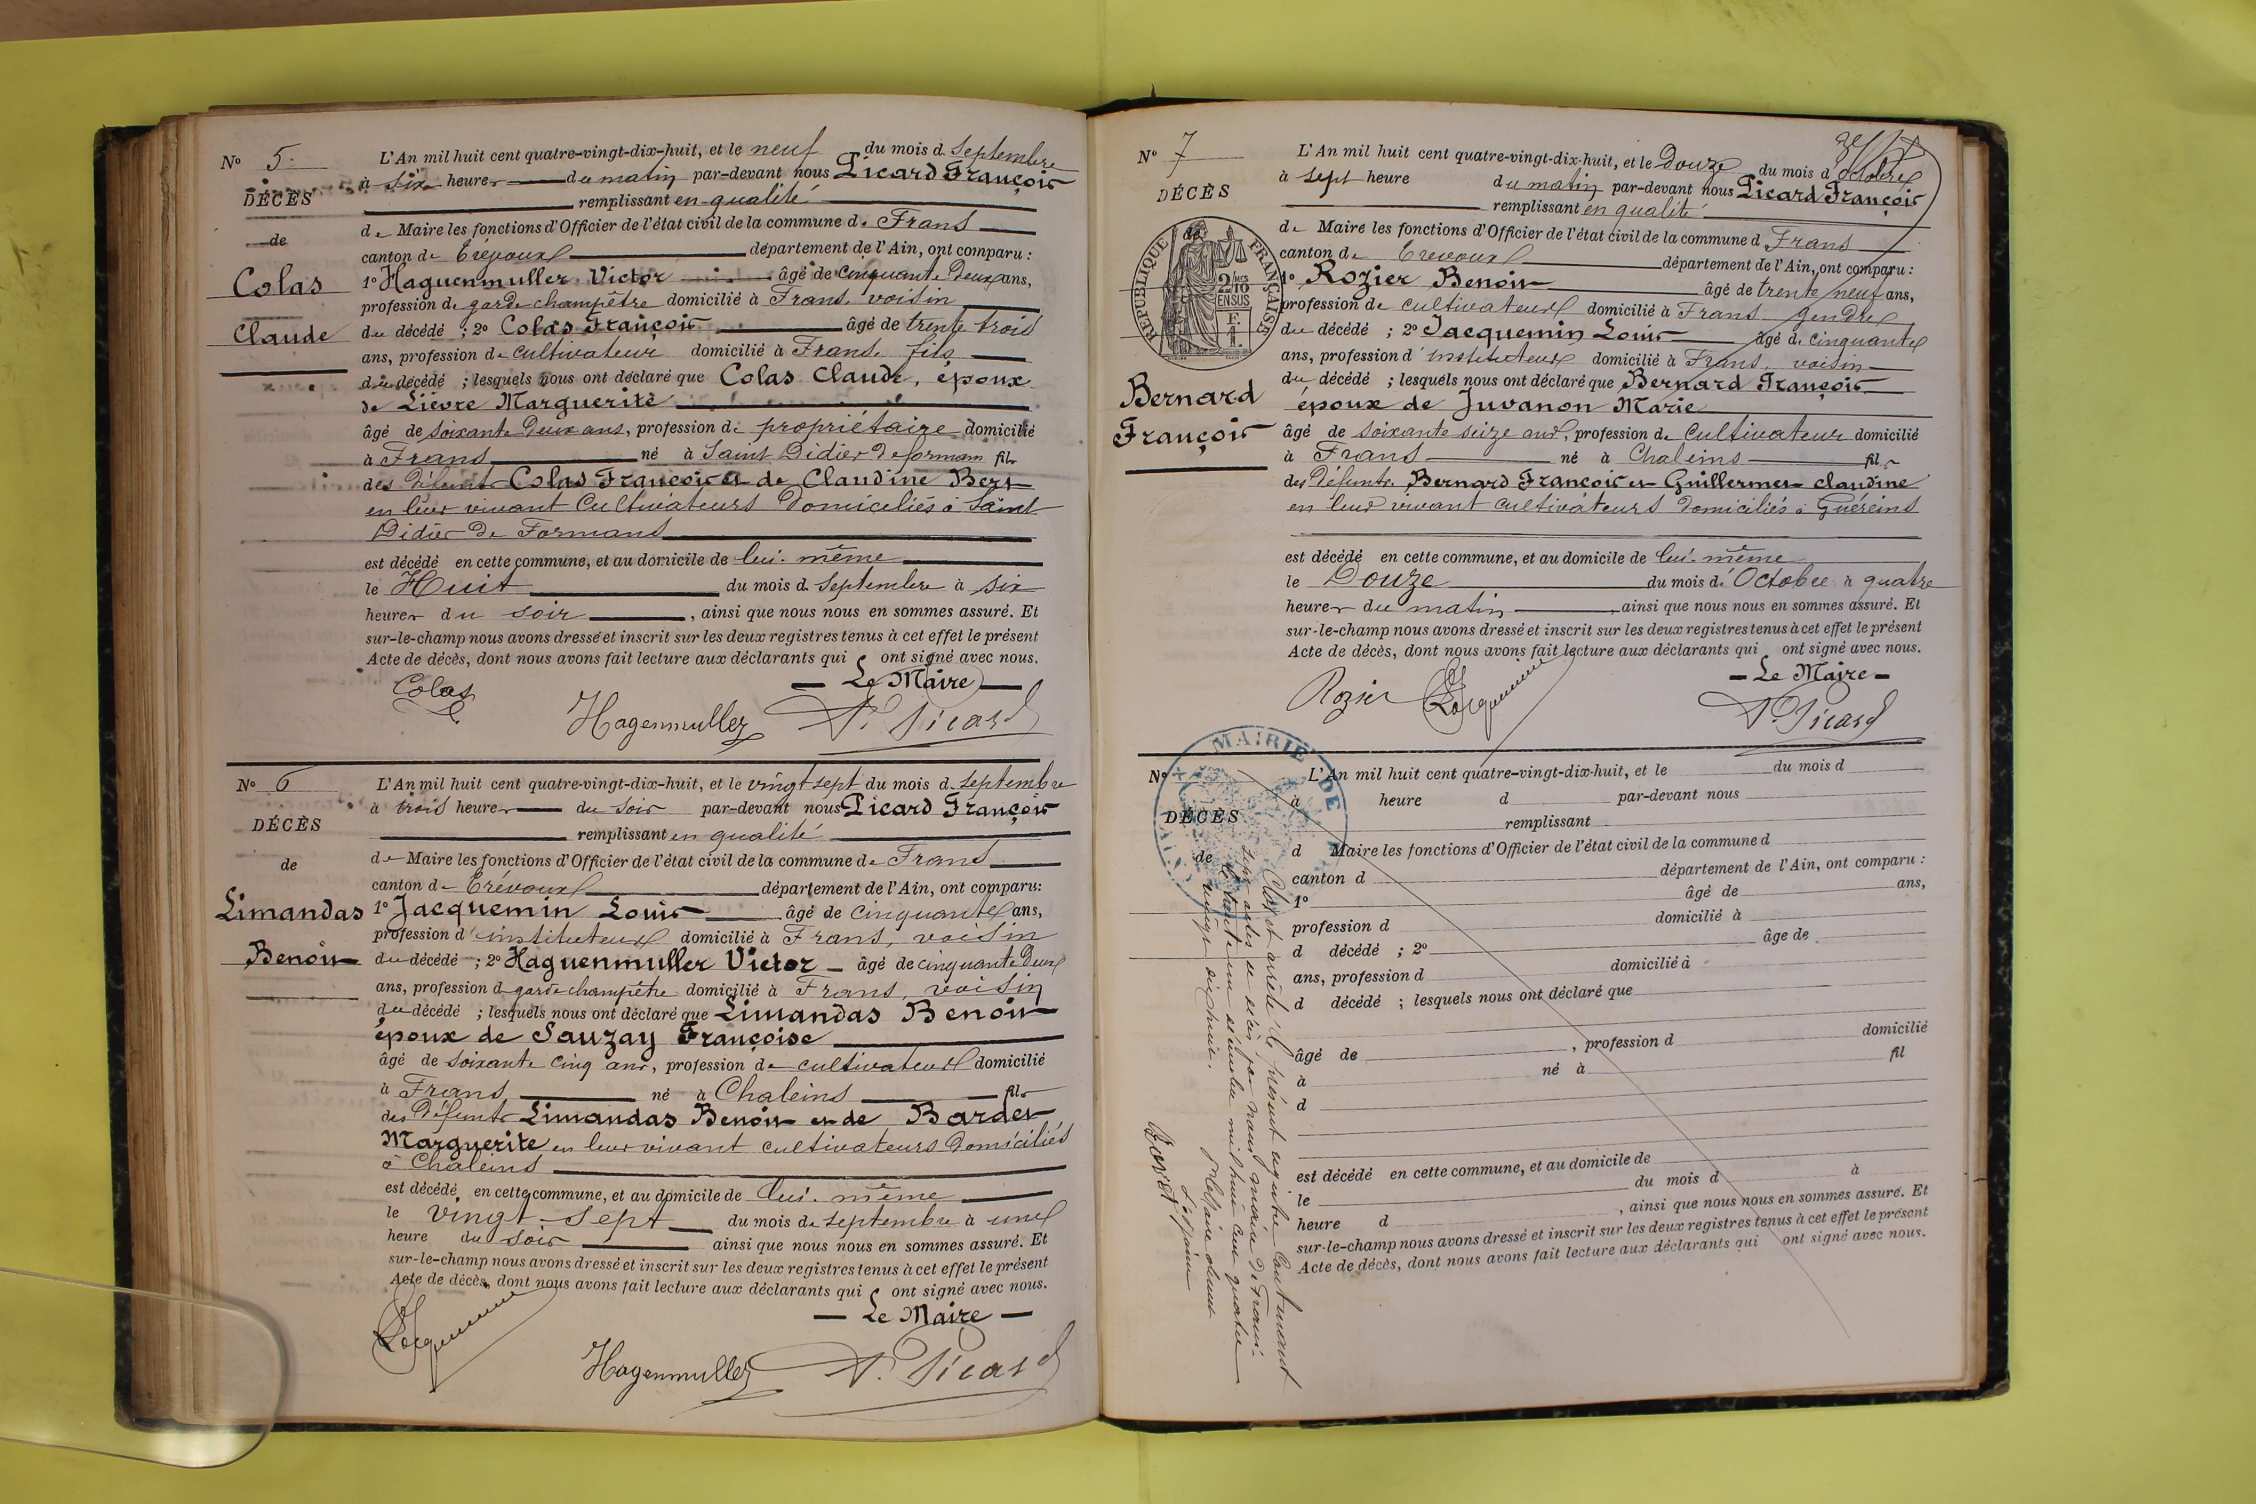 N° 5.
DÉCÈS
de
Colas
Claude
L'An mil huit cent quatre-vingt-dix-huit, et le neuf du mois d. Septembre
à six heures du matin par-devant nous Picard François
remplissant en qualité
de Maire les fonctions d'Officier de l'état civil de la commune de Frans
canton de Trévoux département de l'Ain, ont comparu :
1° Haguenmuller Victor âgé de cinquante deux ans,
profession de garde champêtre domicilié à Frans, voisin
du décédé ; 2° Colas François âgé de trente trois
ans, profession de cultivateur domicilié à Frans. fils
du décédé ; lesquels nous ont déclaré que Colas Claude, époux
de Lièvre Marguerite
âgé de soixante deux ans, profession de propriétaire domicilié
à Frans né à Saint Didier de formans fils
des défunts Colas François et de Claudine Bert
en leur vivant Cultivateurs domiciliés à Saint
Didier de Formans
est décédé en cette commune, et au domicile de lui-même
le Huit du mois d. Septembre à six
heures du soir , ainsi que nous nous en sommes assuré. Et
sur-le-champ nous avons dressé et inscrit sur les deux registres tenus à cet effet le présent
Acte de décès, dont nous avons fait lecture aux déclarants qui ont signé avec nous.
Le Maire
Colas Hagenmuller Picard
N° 6
DÉCÈS
de
Limandas
Benoit
L'An mil huit cent quatre-vingt-dix-huit, et le vingt sept du mois d. Septembre
à trois heures du soir par-devant nous Picard François
remplissant en qualité
de Maire les fonctions d'Officier de l'état civil de la commune de Frans
canton de Trévoux département de l'Ain, ont comparu:
1° Jacquemin Louis âgé de cinquante ans,
profession d'instituteur domicilié à Frans, voisin
du décédé ; 2° Haguenmuller Victor âgé de cinquante deux
ans, profession d garde champêtre domicilié à Frans, voisin
du décédé ; lesquels nous ont déclaré que Limandas Benoit
époux de Sauzay Françoise
âgé de soixante cinq ans, profession de cultivateur domicilié
à Frans né à Chaleins fils
des défunts Limandas Benoit et de Bardet
Marguerite en leur vivant cultivateurs domiciliés
à Chaleins
est décédé en cette commune, et au domicile de lui-même
le vingt-sept du mois de septembre à une
heure du soir ainsi que nous nous en sommes assuré. Et
sur-le-champ nous avons dressé et inscrit sur les deux registres tenus à cet effet le présent
Acte de décès, dont nous avons fait lecture aux déclarants qui ont signé avec nous.
Le Maire
Jacquemin Hagenmuller Picard
N° 7
DÉCÈS
de
RÉPUBLIQUE FRANÇAISE
2/10
EN SUS
Bernard
François
L'An mil huit cent quatre-vingt-dix-huit, et le Douze du mois d'Octobre
à sept heure du matin par-devant nous Picard François
remplissant en qualité
de Maire les fonctions d'Officier de l'état civil de la commune d Frans
canton de Trévoux département de l'Ain, ont comparu :
1° Rozier Benoit âgé de trente neuf ans,
profession de cultivateur domicilié à Frans gendre
du décédé ; 2° Jacquemin Louis âgé de cinquante
ans, profession d'instituteur domicilié à Frans, voisin
du décédé ; lesquels nous ont déclaré que Bernard François
époux de Juvanon Marie
âgé de soixante seize ans, profession de cultivateur domicilié
à Frans né à Chaleins fils
des défunts Bernard François et Guillermet claudine
en leur vivant cultivateurs domiciliés à Guéreins
est décédé en cette commune, et au domicile de lui-même
le Douze du mois d'Octobre à quatre
heures du matin , ainsi que nous nous en sommes assuré. Et
sur-le-champ nous avons dressé et inscrit sur les deux registres tenus à cet effet le présent
Acte de décès, dont nous avons fait lecture aux déclarants qui ont signé avec nous.
Le Maire
Rozier Jacquemin Picard
MAIRIE DE
N°
DÉCÈS
de
L'An mil huit cent quatre-vingt-dix-huit, et le du mois d
à heure d par-devant nous
remplissant
d Maire les fonctions d'Officier de l'état civil de la commune d
canton d département de l'Ain, ont comparu :
1° âgé de ans,
profession d domicilié à
d décédé ; 2° âge de
ans, profession d domicilié à
d décédé ; lesquels nous ont déclaré que
âgé de , profession d domicilié
à né à fil
d
est décédé en cette commune, et au domicile de
le du mois d à
heure d , ainsi que nous nous en sommes assuré. Et
sur-le-champ nous avons dressé et inscrit sur les deux registres tenus à cet effet le présent
Acte de décès, dont nous avons fait lecture aux déclarants qui ont signé avec nous.
Clos et arrêté le présent registre contenant
sept actes de décès par nous maire de Frans
le trente un décembre mil huit cent quatre
vingt dix huit.